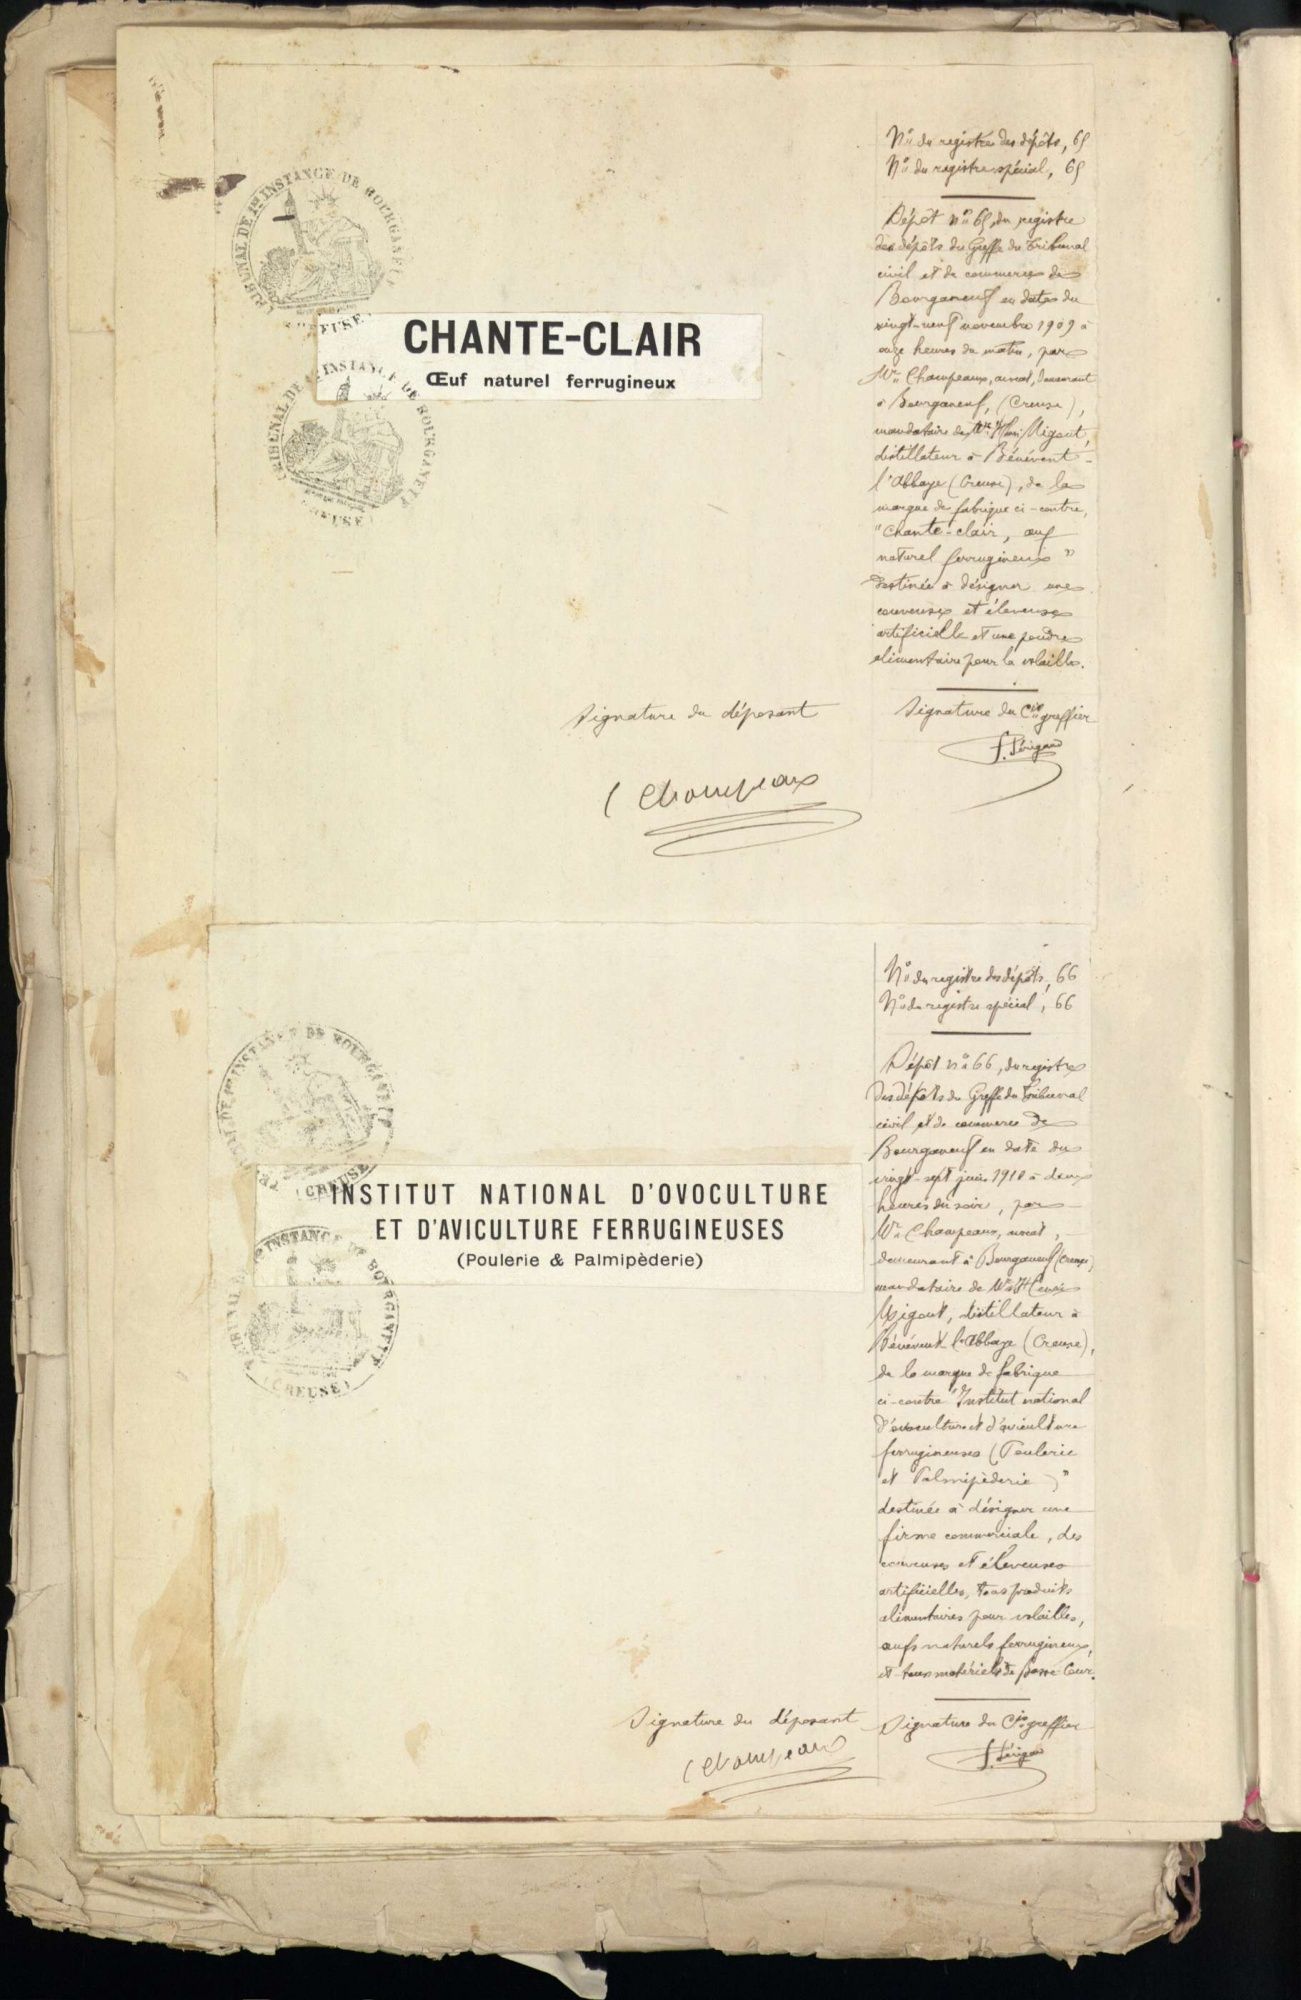 TRIBUNAL DE 1ère INSTANCE DE BOURGANEUF
(CREUSE)
CHANTE-CLAIR
Œuf naturel ferrugineux
TRIBUNAL DE 1ère INSTANCE DE BOURGANEUF
(CREUSE)
N° du registre des dépôts, 65
N° du registre spécial, 65
Dépôt n° 65, du registre
des dépôts du Greffe du Tribunal
civil et de commerce de
Bourganeuf en date du
vingt-neuf novembre 1909 à
onze heures du matin, par
Mr Champeaux, avocat, demeurant
à Bourganeuf, (Creuse),
mandataire de Mr Henri Migout,
distillateur à Bénévent-
l'Abbaye (Creuse), de la
marque de fabrique ci-contre,
"Chante-clair, œuf
naturel ferrugineux"
destinée à désigner une
couveuse et éleveuse
artificielle et une poudre
alimentaire pour la volaille.
Signature du déposant
Champeaux
Signature du Cis greffier
INSTITUT NATIONAL D'OVOCULTURE
ET D'AVICULTURE FERRUGINEUSES
(Poulerie & Palmipèderie)
TRIBUNAL DE 1ère INSTANCE DE BOURGANEUF
(CREUSE)
TRIBUNAL DE 1ère INSTANCE DE BOURGANEUF
(CREUSE)
N° du registre des dépôts, 66
N° du registre spécial, 66
Dépôt n° 66, du registre
des dépôts du Greffe du Tribunal
civil et de commerce de
Bourganeuf en date du
vingt-sept juin 1910 à deux
heures du soir, par
Mr Champeaux, avocat,
demeurant à Bourganeuf (Creuse)
mandataire de Mr Henri
Migout, distillateur à
Bénévent l'Abbaye (Creuse),
de la marque de fabrique
ci-contre "Institut national
d'ovoculture et d'aviculture
ferrugineuses (Poulerie
et Palmipèderie)"
destinée à désigner une
firme commerciale, des
couveuses et éleveuses
artificielles, tous produits
alimentaires pour volailles,
œufs naturels ferrugineux,
et tous matériels de Basse-Cour.
Signature du déposant
Champeaux
Signature du Cis greffier